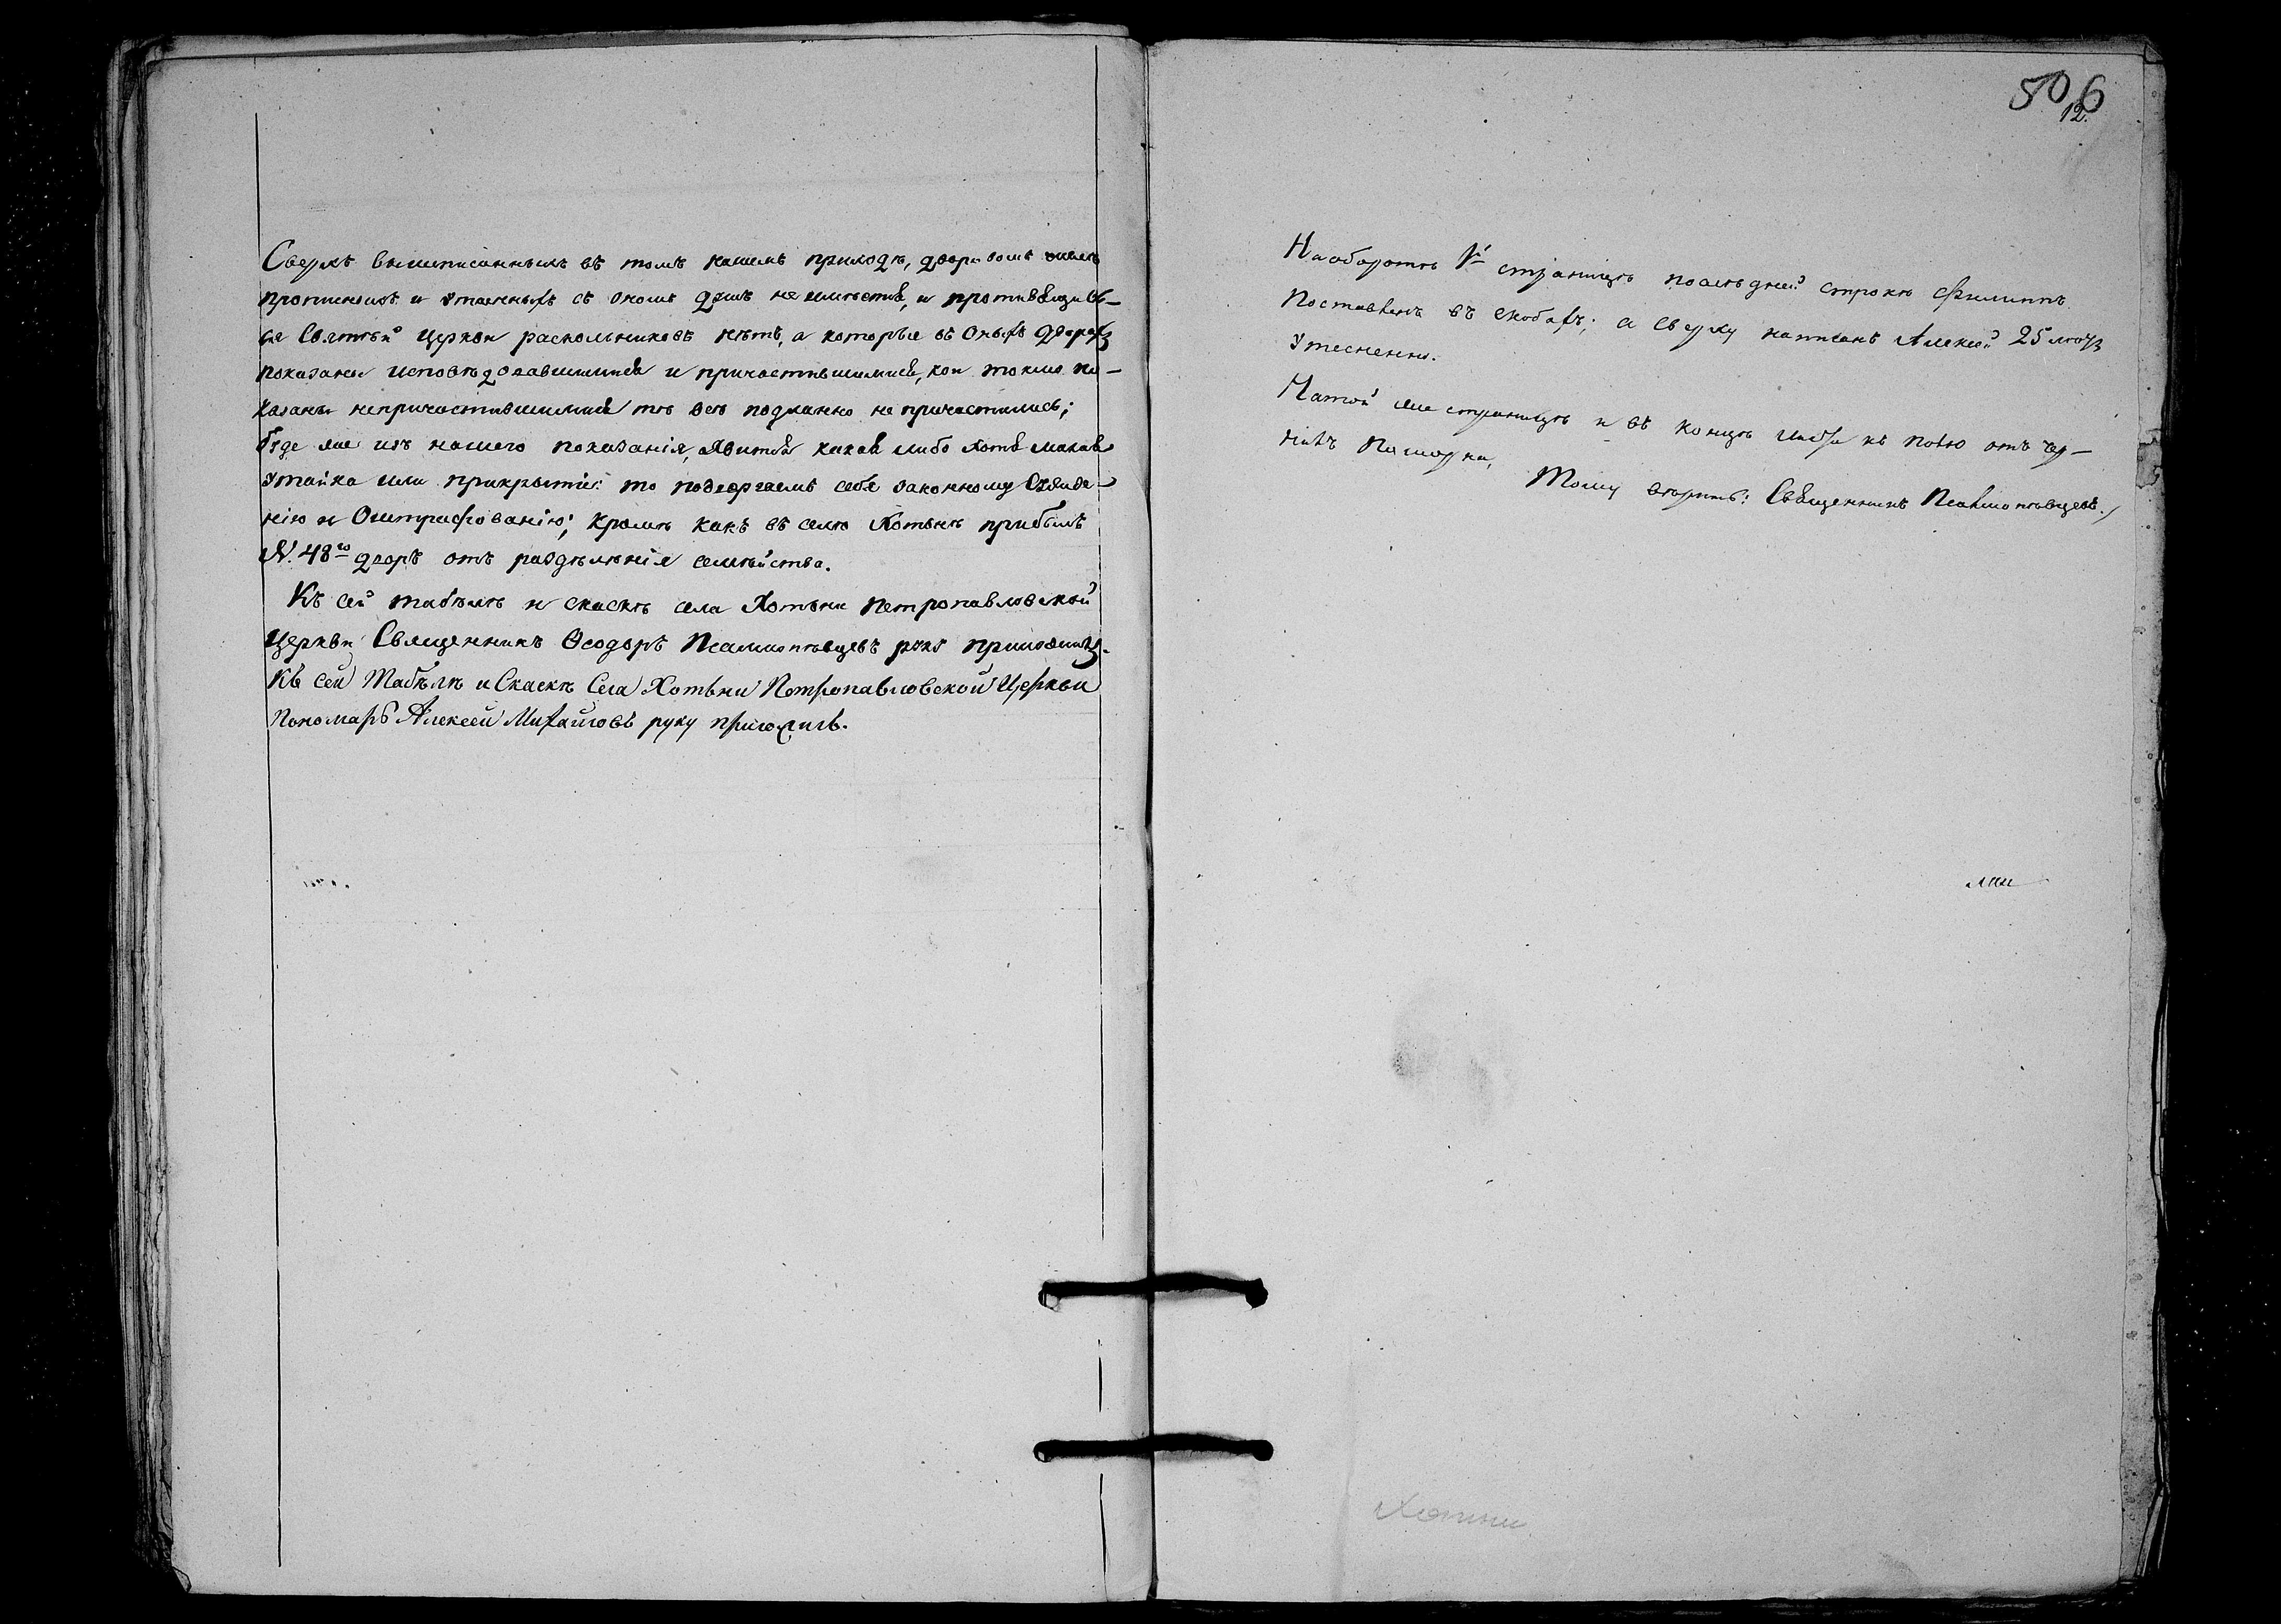 Сверхъ вышеписанныхъ въ томъ нашемъ приходѣ, дворовъ
прописныхъ и утаенныхъ въ ономъ душъ не имѣется, и противящихъ-
ся Святѣй Церкви раскольниковъ нѣтъ, а которые въ оныхъ дворахъ
показаны исповѣдовавшимися и причастившимися, кои токмо по-
казаны непричастившимися тѣ всѣ подлинно не причастились;
буде же изъ нашего показанія, явится какая либо хотя малая
утайка или прикрытіе: то подвергаемъ себя законному сужде-
нію и Оштрафованію; кромѣ какъ въ селѣ Хотьнѣ прибылъ
№. 48го дворъ отъ раздѣленія семѣйства.
Къ сей табѣлѣ и скаскѣ села Хотьни Петропавловской
Церкви Священникъ Ѳеодоръ Псаломпѣвцевъ руку приложилъ.
Къ сей Табѣлѣ и Скаскѣ Села Хотьни Петропавловской Церкви
Пономарь Алексей Михайловъ руку приложилъ.
506
12.
На оборотѣ страницѣ послѣдней строкѣ Филиппъ
поставленъ въ скобахъ; а сверху написанъ Алексей 25 лѣтъ
утесненно.
На той же страницѣ и въ концѣ отъ чер-
нилъ помарка,
Тому вѣритъ: Священникъ Псаломпѣвцевъ.
Хотьни